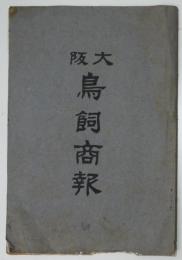 大阪
鳥飼商報